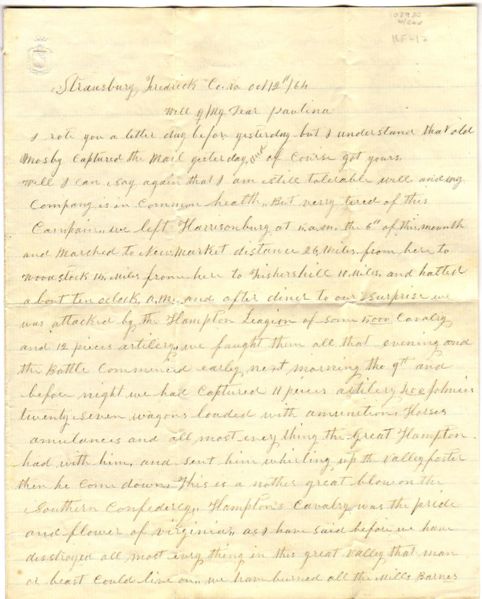 Strausburg Fredrick Co. va oct 12th/64
Well My Dear Paulina
I rote you a letter day before yesterday but I understand that old
Mosby Captured the Mail yesterday and of Course got yours.
Well I Can Say again that I am Still tolerable well and my
Company is in Common health, But very tired of this
Campain. we left Harrisonburg at the 6th of this month
and Marched to New Market distance 26 Miles from here to
Woodstock Miles from here to Fishershill 10 Miles and halted
about ten oclock A.M. and after diner to our Surprise we
was attacked by the Hampton Leagion of Some Cavalry
and 12 pieces artilery, we faught them all that evening and
the Battle Commenced early next morning the 9th and
before night we had Captured 11 pieces artillery
twenty Seven wagons loaded with amunition Horses
amulances and all most every thing the Great Hampton
had with him, and Sent him whirling up the valley faster
then he Come down. This is a nother great blow on the
Southern Confedercy, Hampton's Cavalry was the pride
and flower of virginia, as I have Said before we have
disstroyed all most every thing in this great valley that man
or beast Could live on. we have burned all the Mills Barnes